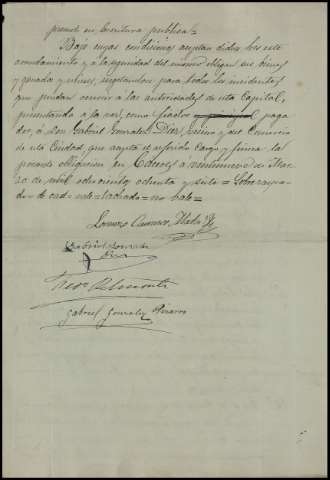 preende en escritura publica=
Bajo cuyas condiciones aceptan dichos Sres este
arrendamiento, y a la seguridad del mismo obligan sus bienes
y ganados y rentas, sugetandose para todos los incidentes
que puedan ocurrir a las autoridades de esta Capital,
presentando a la vez, como fiador principal paga
dor, a don Gabriel Gonzalez Diaz, vecino y del Comercio
de esta Ciudad, que acepta el referido cargo y firma la
presente obligacion en Caceres á veintinueve de Mar
zo de mil ochocientos ochenta y siete = Sobre raspa
do = de = tachado = no vale =
Lorenzo
Gabriel Gonzalez
Diaz
Belmonte
Gabriel Gonzalez Pizarro